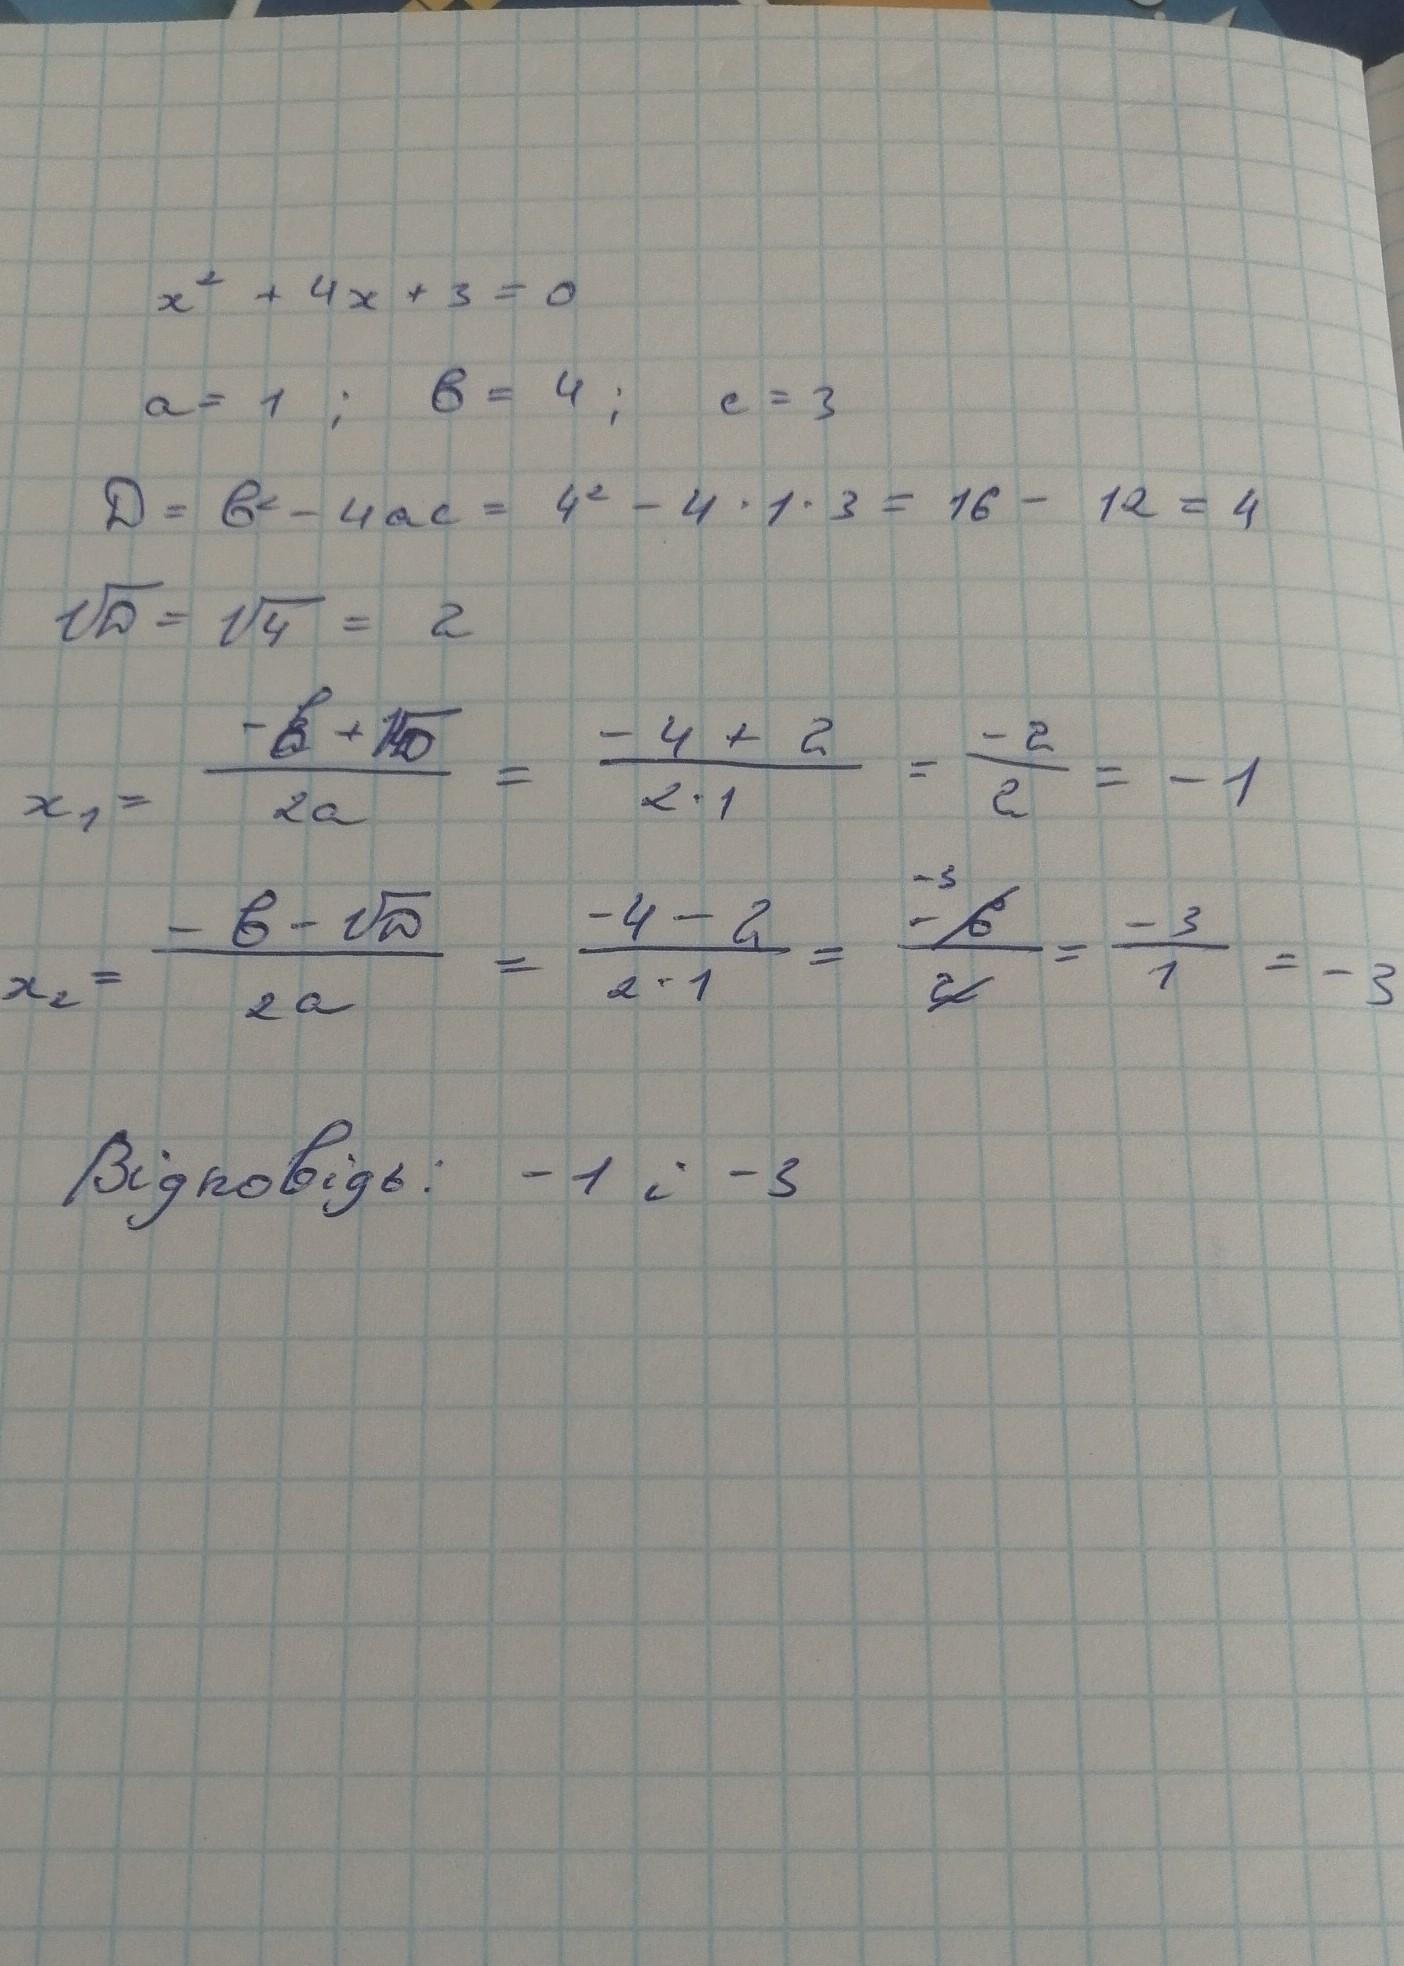 x² + 4x + 3 = 0
a = 1 ; в = 4 ; c = 3
D = в² - 4ac = 4² - 4 · 1 · 3 = 16 - 12 = 4
√D = √4 = 2
x₁ = (-в + √D)/(2a) = (-4 + 2)/(2·1) = (-2)/2 = -1
x₂ = (-в - √D)/(2a) = (-4 - 2)/(2·1) = -3 (-6)/2 = (-3)/1 = -3
Відповідь: -1 і -3